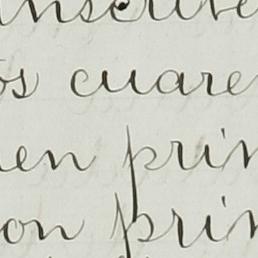 nscribe
os cuare
en prin
on prin